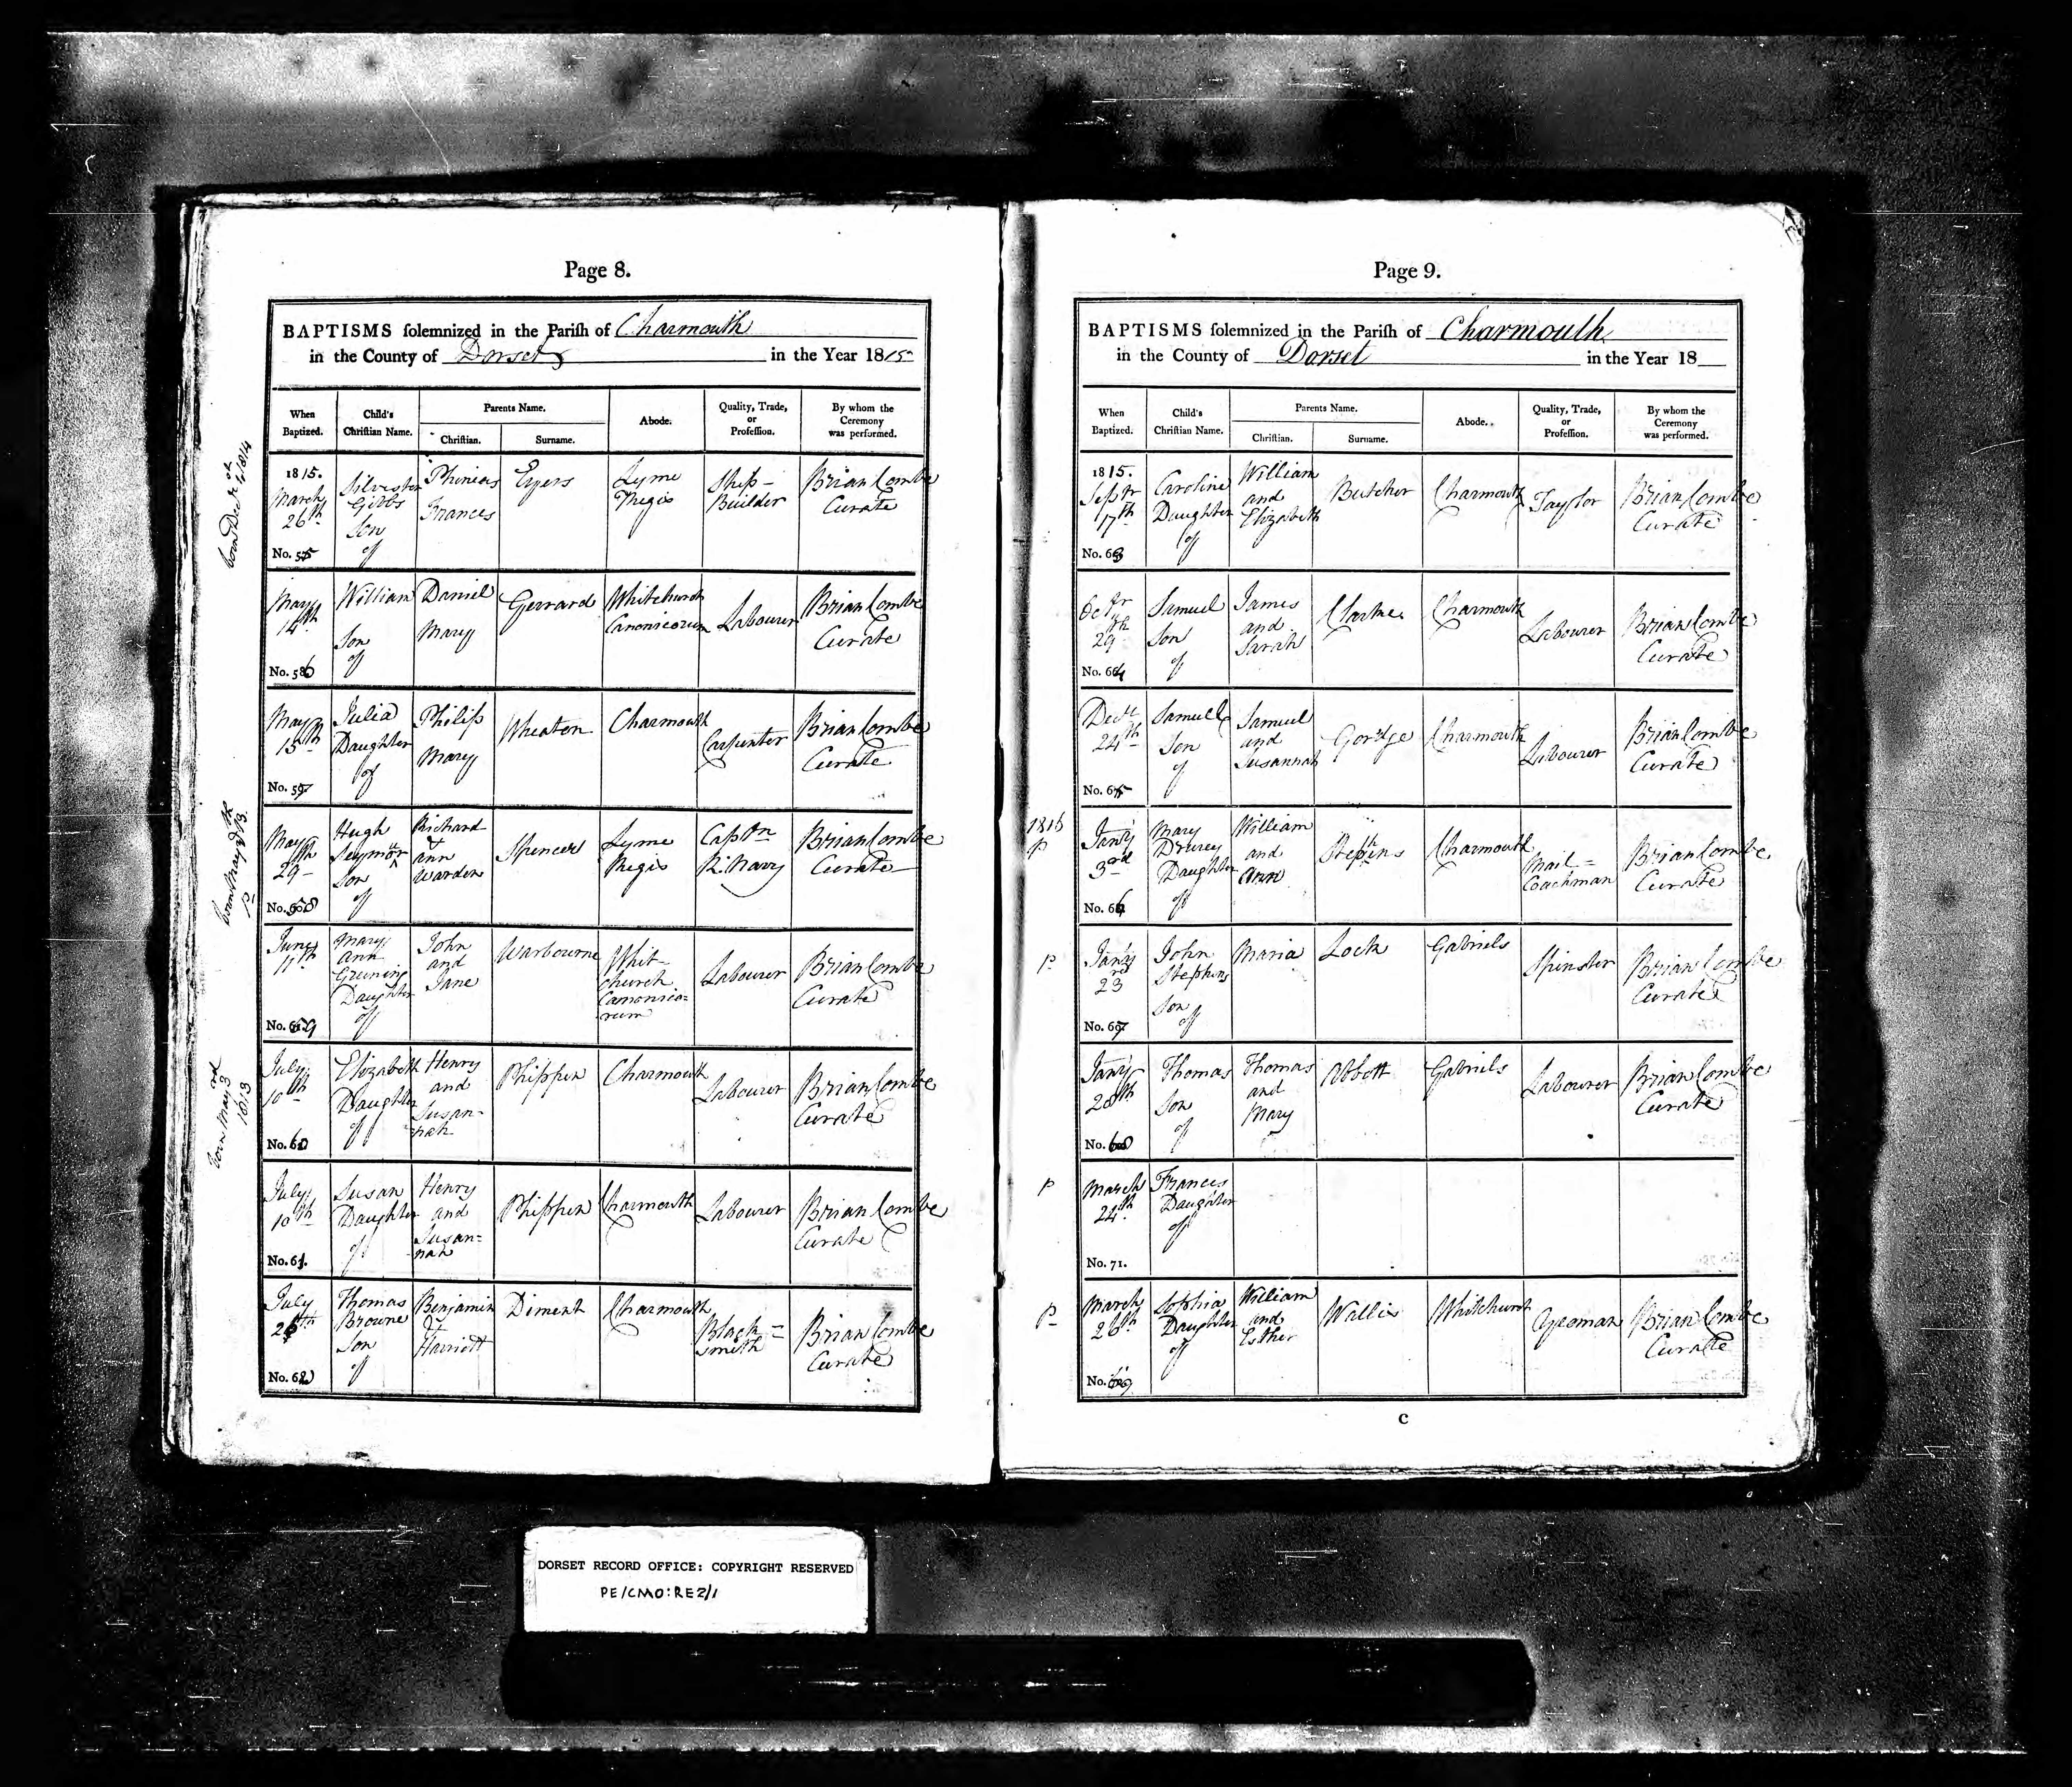 Page 8.
BAPTISMS solemnized in the Parish of Charmouth
in the County of Dorset in the Year 1815
When Baptized.
Child's Christian Name.
Parents Name.
Christian.
Surname.
Abode.
Quality, Trade, or Profession.
By whom the Ceremony was performed.
1815. March 26th
Silvester Gibbs Son of
Phineas Frances
Eyers
Lyme Regis
Ship-Builder
Brian Combe Curate
No. 55
May 14th
William Son of
Daniel Mary
Gerrard
Whitchurch Canonicorum
Labourer
Brian Combe Curate
No. 56
May 15th
Julia Daughter of
Philip Mary
Wheaton
Charmouth
Carpenter
Brian Combe Curate
No. 57
born May 8th 13.
P
May 29th
Hugh Seymör Son of
Richard & Ann Warden
Spencer
Lyme Regis
Captn R. Navy
Brian Combe Curate
No. 58
June 11th
Mary Ann Daughter of
John and Jane
Warbourne
Whit-church Canonico=rum
Labourer
Brian Combe Curate
No. 59
born May 3rd 1813
July 10th
Elizabeth Daughter of
Henry and Susan-nah
Phippen
Charmouth
Labourer
Brian Combe Curate
No. 60
July 10th
Susan Daughter of
Henry and Susan=nah
Phippen
Charmouth
Labourer
Brian Combe Curate
No. 61.
July 26th
Thomas Browne Son of
Benjamin & Harriett
Diment
Charmouth
Black=smith
Brian Combe Curate
No. 62
Page 9.
BAPTISMS solemnized in the Parish of Charmouth
in the County of Dorset in the Year 18
When Baptized.
Child's Christian Name.
Parents Name.
Christian.
Surname.
Abode.
Quality, Trade, or Profession.
By whom the Ceremony was performed.
1815. Septr 17th
Caroline Daughter of
William and Elizabeth
Butcher
Charmouth
Taylor
Brian Combe Curate
No. 63
Octr 29th
Samuel Son of
James and Sarah
Charmouth
Labourer
Brian Combe Curate
No. 64
Decr 24th
Samuel Son of
Samuel and Susannah
Charmouth
Labourer
Brian Combe Curate
No. 65
1816
P
Jany 3rd
Mary Drurey Daughter of
William and Ann
Stephens
Charmouth
Mail=Coachman
Brian Combe Curate
No. 66
P
Jany 23rd
John Stephens Son of
Maria
Lock
Gabriels
Spinster
Brian Combe Curate
No. 67
Jany 28th
Thomas Son of
Thomas and Mary
Abbott
Gabriels
Labourer
Brian Combe Curate
No. 68
P
March 24th
Frances Daughter of
No. 71.
P
March 26th
Sophia Daughter of
William and Esther
Wallis
Whitchurch
Yeoman
Brian Combe Curate
No. 69
C
DORSET RECORD OFFICE: COPYRIGHT RESERVED
PE/CMO:RE2/1